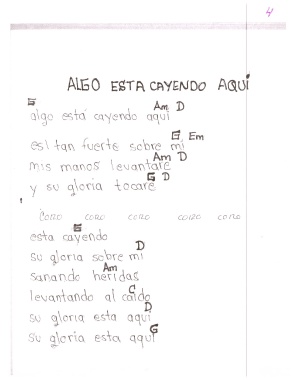 4
ALGO ESTA CAYENDO AQUI
G Am D
algo está cayendo aquí
G Em
es! tan fuerte sobre mi
Am D
mis manos levantare
G D
y su gloria tocare
CORO CORO CORO CORO CORO
G
esta cayendo
D
su gloria sobre mi
Am
sanando heridas
C
levantando al caido
D
su gloria esta aqui
G
su gloria esta aqui